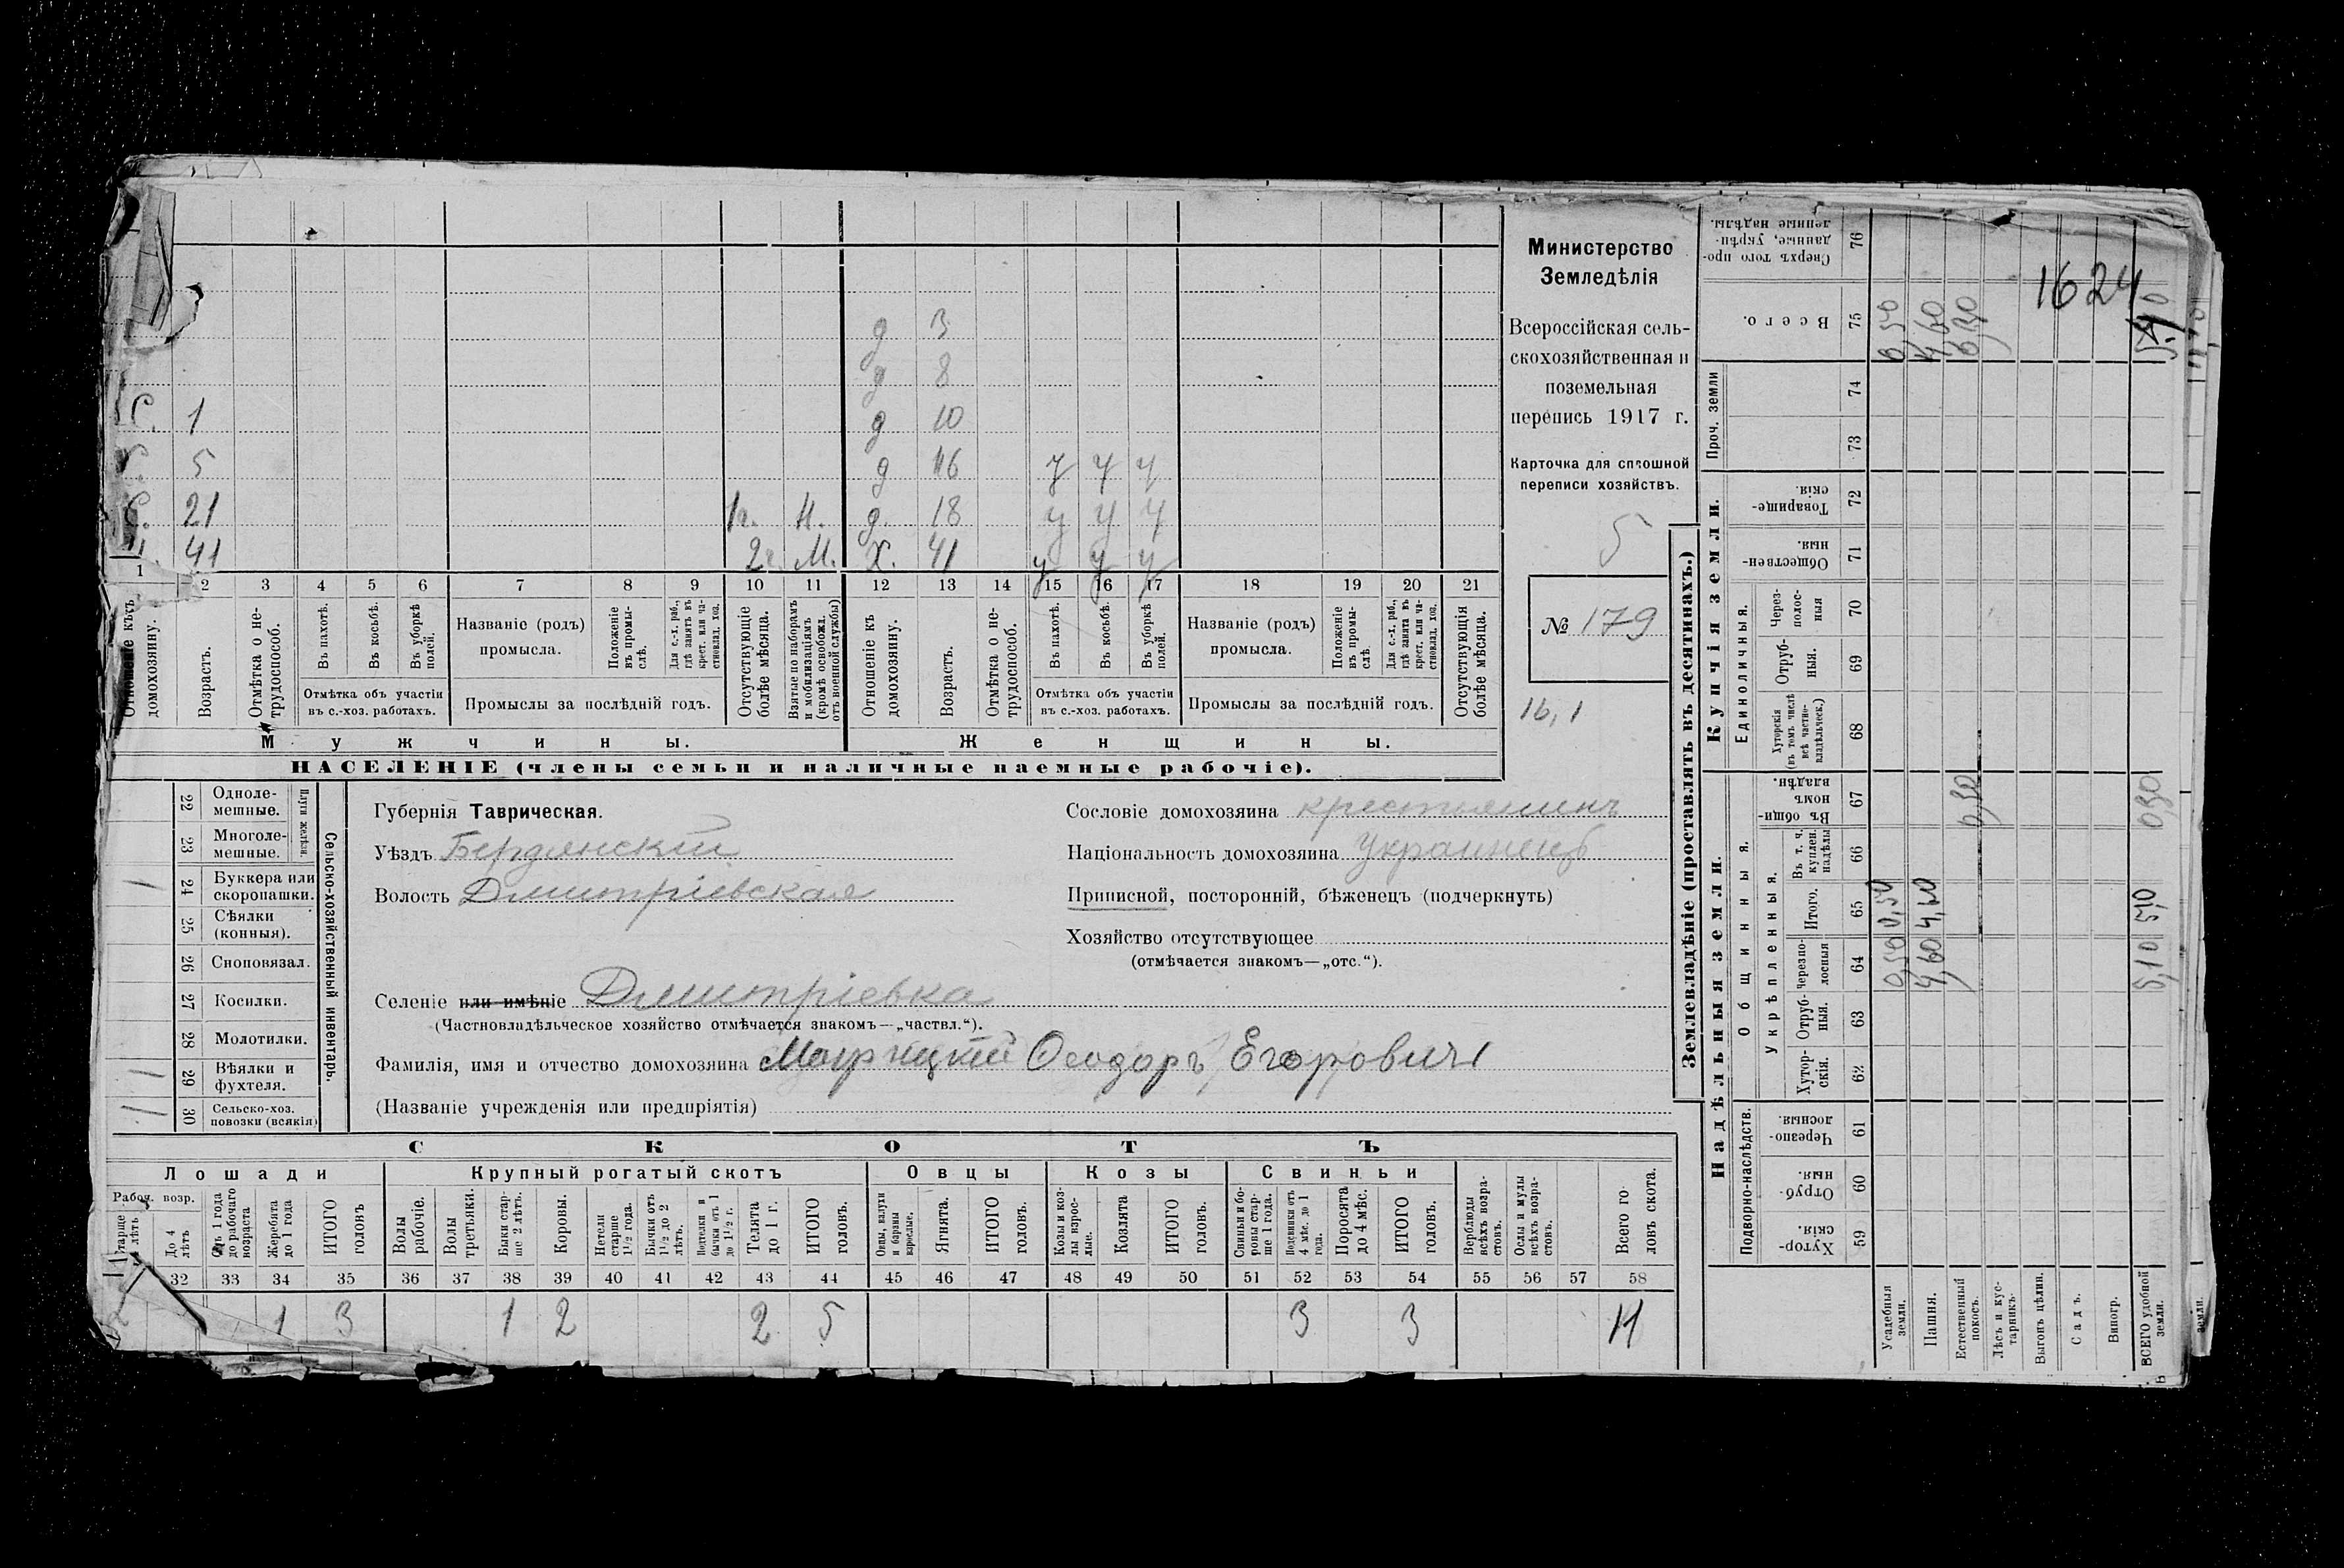 1624
д 3
д 8
С. 1 д 10
С. 5 д 16 у у у
С. 21 1г. Н. д. 18 у у у
41 2г. М. Х. 41 у у у
1 2 3 4 5 6 7 8 9 10 11 12 13 14 15 16 17 18 19 20 21
Отношеніе къ домохозяину.
Возрастъ.
Отмѣтка о нетрудоспособ.
Въ пахотѣ.
Въ косьбѣ.
Въ уборкѣ полей.
Отмѣтка объ участіи въ с.-хоз. работахъ.
Названіе (родъ) промысла.
Положеніе въ промыслѣ.
Для с.-х. раб., гдѣ занятъ въ крест. или частновлад. хоз.
Промыслы за послѣдній годъ.
Отсутствующіе болѣе мѣсяца.
Взятые по наборамъ и мобилизаціямъ (кромѣ освобожд. отъ военной службы)
Отношеніе къ домохозяину.
Возрастъ.
Отмѣтка о нетрудоспособ.
Въ пахотѣ.
Въ косьбѣ.
Въ уборкѣ полей.
Отмѣтка объ участіи въ с.-хоз. работахъ.
Названіе (родъ) промысла.
Положеніе въ промыслѣ.
Для с.-х. раб., гдѣ занята въ крест. или частновлад. хоз.
Промыслы за послѣдній годъ.
Отсутствующія болѣе мѣсяца.
Мужчины.
Женщины.
НАСЕЛЕНІЕ (члены семьи и наличные наемные рабочіе).
Министерство
Земледѣлія
Всероссійская сель-
скохозяйственная и
поземельная
перепись 1917 г.
Карточка для сплошной
переписи хозяйствъ.
5
№ 179
16,1
22 Однолемешные.
23 Многолемешные.
Плуги желѣзн.
24 Буккера или скоропашки. 1
25 Сѣялки (конныя).
26 Сноповязал.
27 Косилки.
28 Молотилки.
29 Вѣялки и фухтеля. 1
30 Сельско-хоз. повозки (всякія) 1
Сельско-хозяйственный инвентарь.
Губернія Таврическая.
Уѣздъ Бердянскій
Волость Дмитріевская
Сословіе домохозяина крестьянинъ
Національность домохозяина Украинецъ
Приписной, посторонній, бѣженецъ (подчеркнуть)
Хозяйство отсутствующее
(отмѣчается знакомъ—„отс.“).
Селеніе или имѣніе Дмитріевка
(Частновладѣльческое хозяйство отмѣчается знакомъ—„частвл.“).
Фамилія, имя и отчество домохозяина Ѳеодоръ Егоровичъ
(Названіе учрежденія или предпріятія)
СКОТЪ
Лошади
Крупный рогатый скотъ
Овцы
Козы
Свиньи
Рабоч. возр.
До 4 лѣтъ
Отъ 1 года до рабочаго возраста
Жеребята до 1 года
ИТОГО головъ
Волы рабочіе.
Волы третьяки.
Быки старше 2 лѣтъ.
Коровы.
Нетели старше 1½ года.
Бычки отъ 1½ до 2 лѣтъ.
Подтелки и бычки отъ 1 до 1½ г.
Телята до 1 г.
ИТОГО головъ.
Овцы, валухи и бараны взрослые.
Ягнята.
ИТОГО головъ.
Козы и козлы взрослые.
Козлята
ИТОГО головъ.
Свиньи и боровы старше 1 года.
Подсвинки отъ 4 мѣс. до 1 года.
Поросята до 4 мѣс.
ИТОГО головъ.
Верблюды всѣхъ возрастовъ.
Ослы и мулы всѣхъ возрастовъ.
Всего головъ скота.
32 33 34 35 36 37 38 39 40 41 42 43 44 45 46 47 48 49 50 51 52 53 54 55 56 57 58
1 3 1 2 2 5 3 3 11
Землевладѣніе (проставлять въ десятинахъ.)
Надѣльныя земли.
Купчія земли.
Проч. земли
Подворно-наслѣдств.
Общинныя.
Укрѣпленныя.
Единоличныя.
76 Сверхъ того проданные, укрѣпленные надѣлы.
75 Всего. 0,50 4,60 0,30
74
73
72 Товарищескія.
71 Общественныя.
70 Черезполосныя
69 Отрубныя.
68 Хуторскія (въ томъ числѣ всѣ частновладѣльческ.)
67 Въ общинномъ владѣн. 0,30 0,30
66 Въ т. ч. куплен. надѣлы
65 Итого. 0,50 4,60 5,10
64 Черезполосныя 0,50 4,60 5,10
63 Отрубныя.
62 Хуторскія.
61 Черезполосныя.
60 Отрубныя.
59 Хуторскія.
Усадебныя земли.
Пашня.
Естественный покосъ.
Лѣсъ и кустарникъ.
Выгонъ цѣлин.
Садъ.
Виногр.
ВСЕГО удобной земли.
земли.